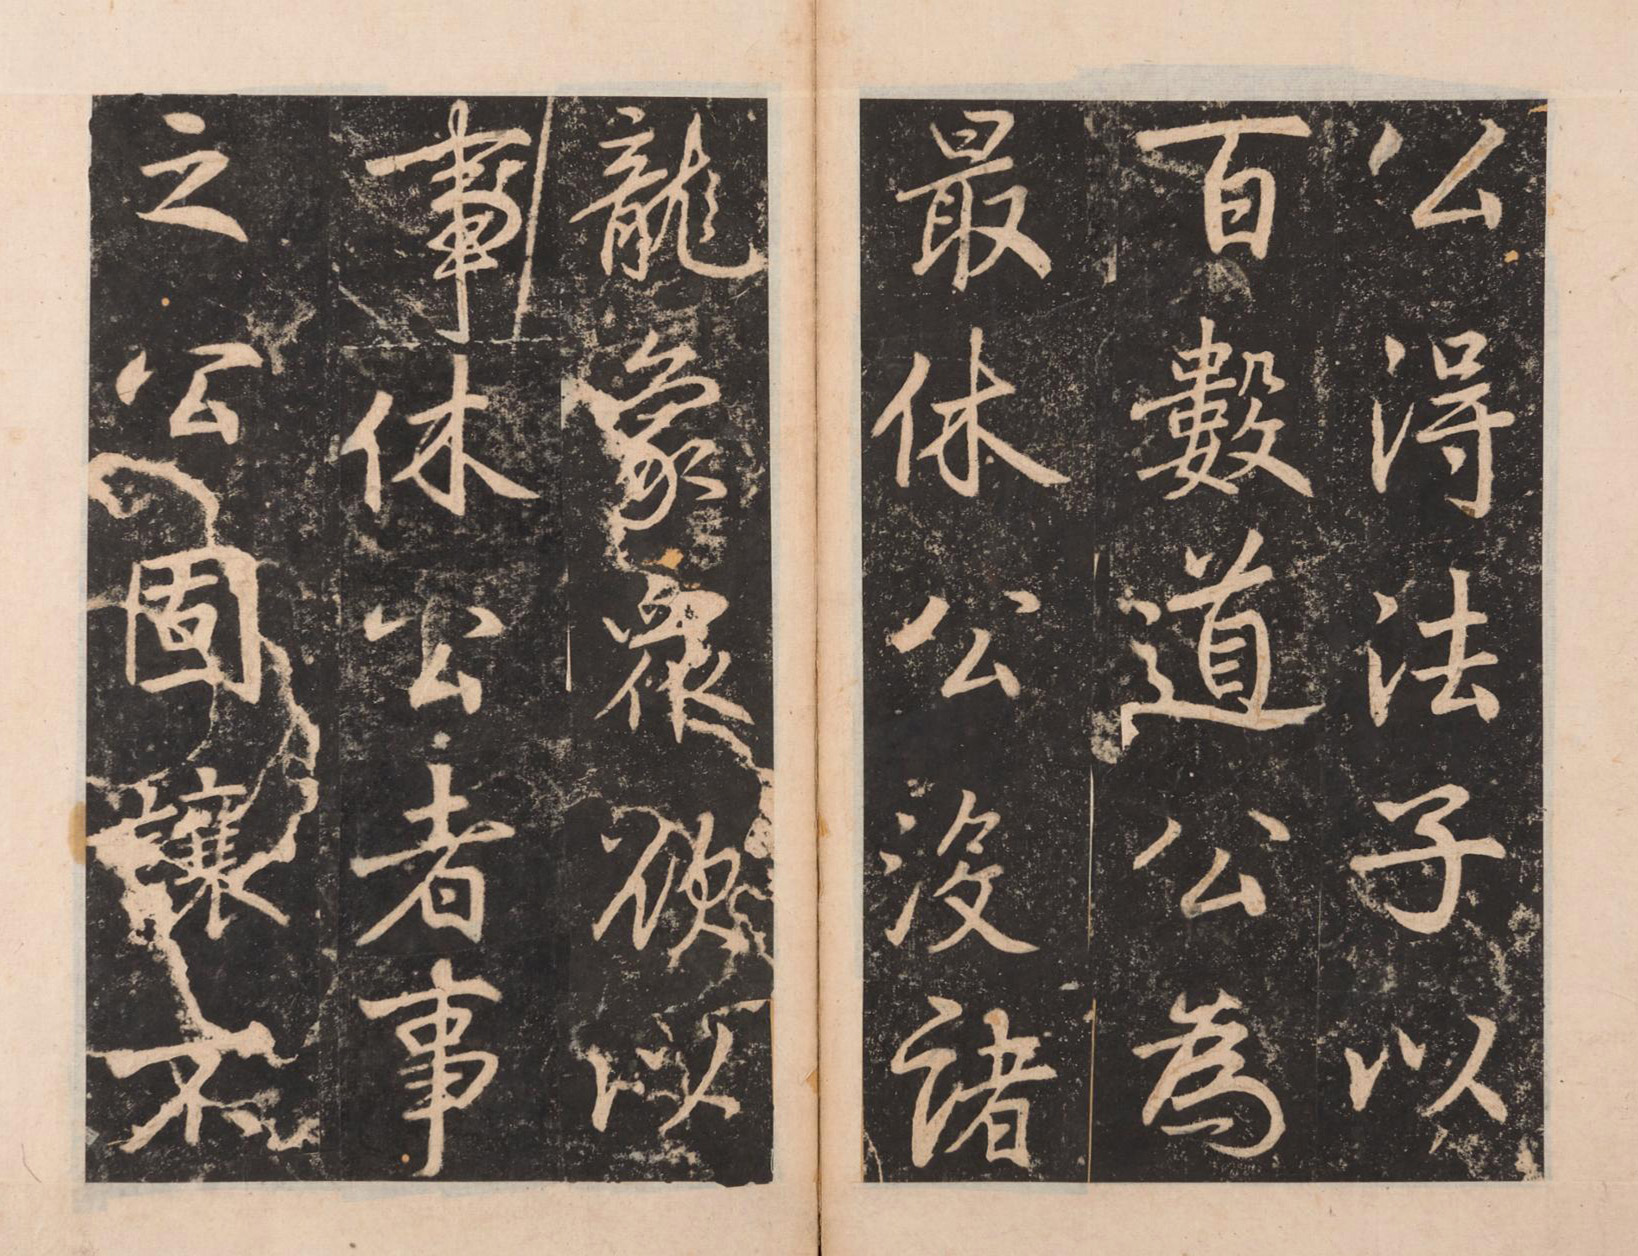 公得法子以
百數道公為
最休公沒諸
龍象眾欲以
事休公者事
之公固讓不